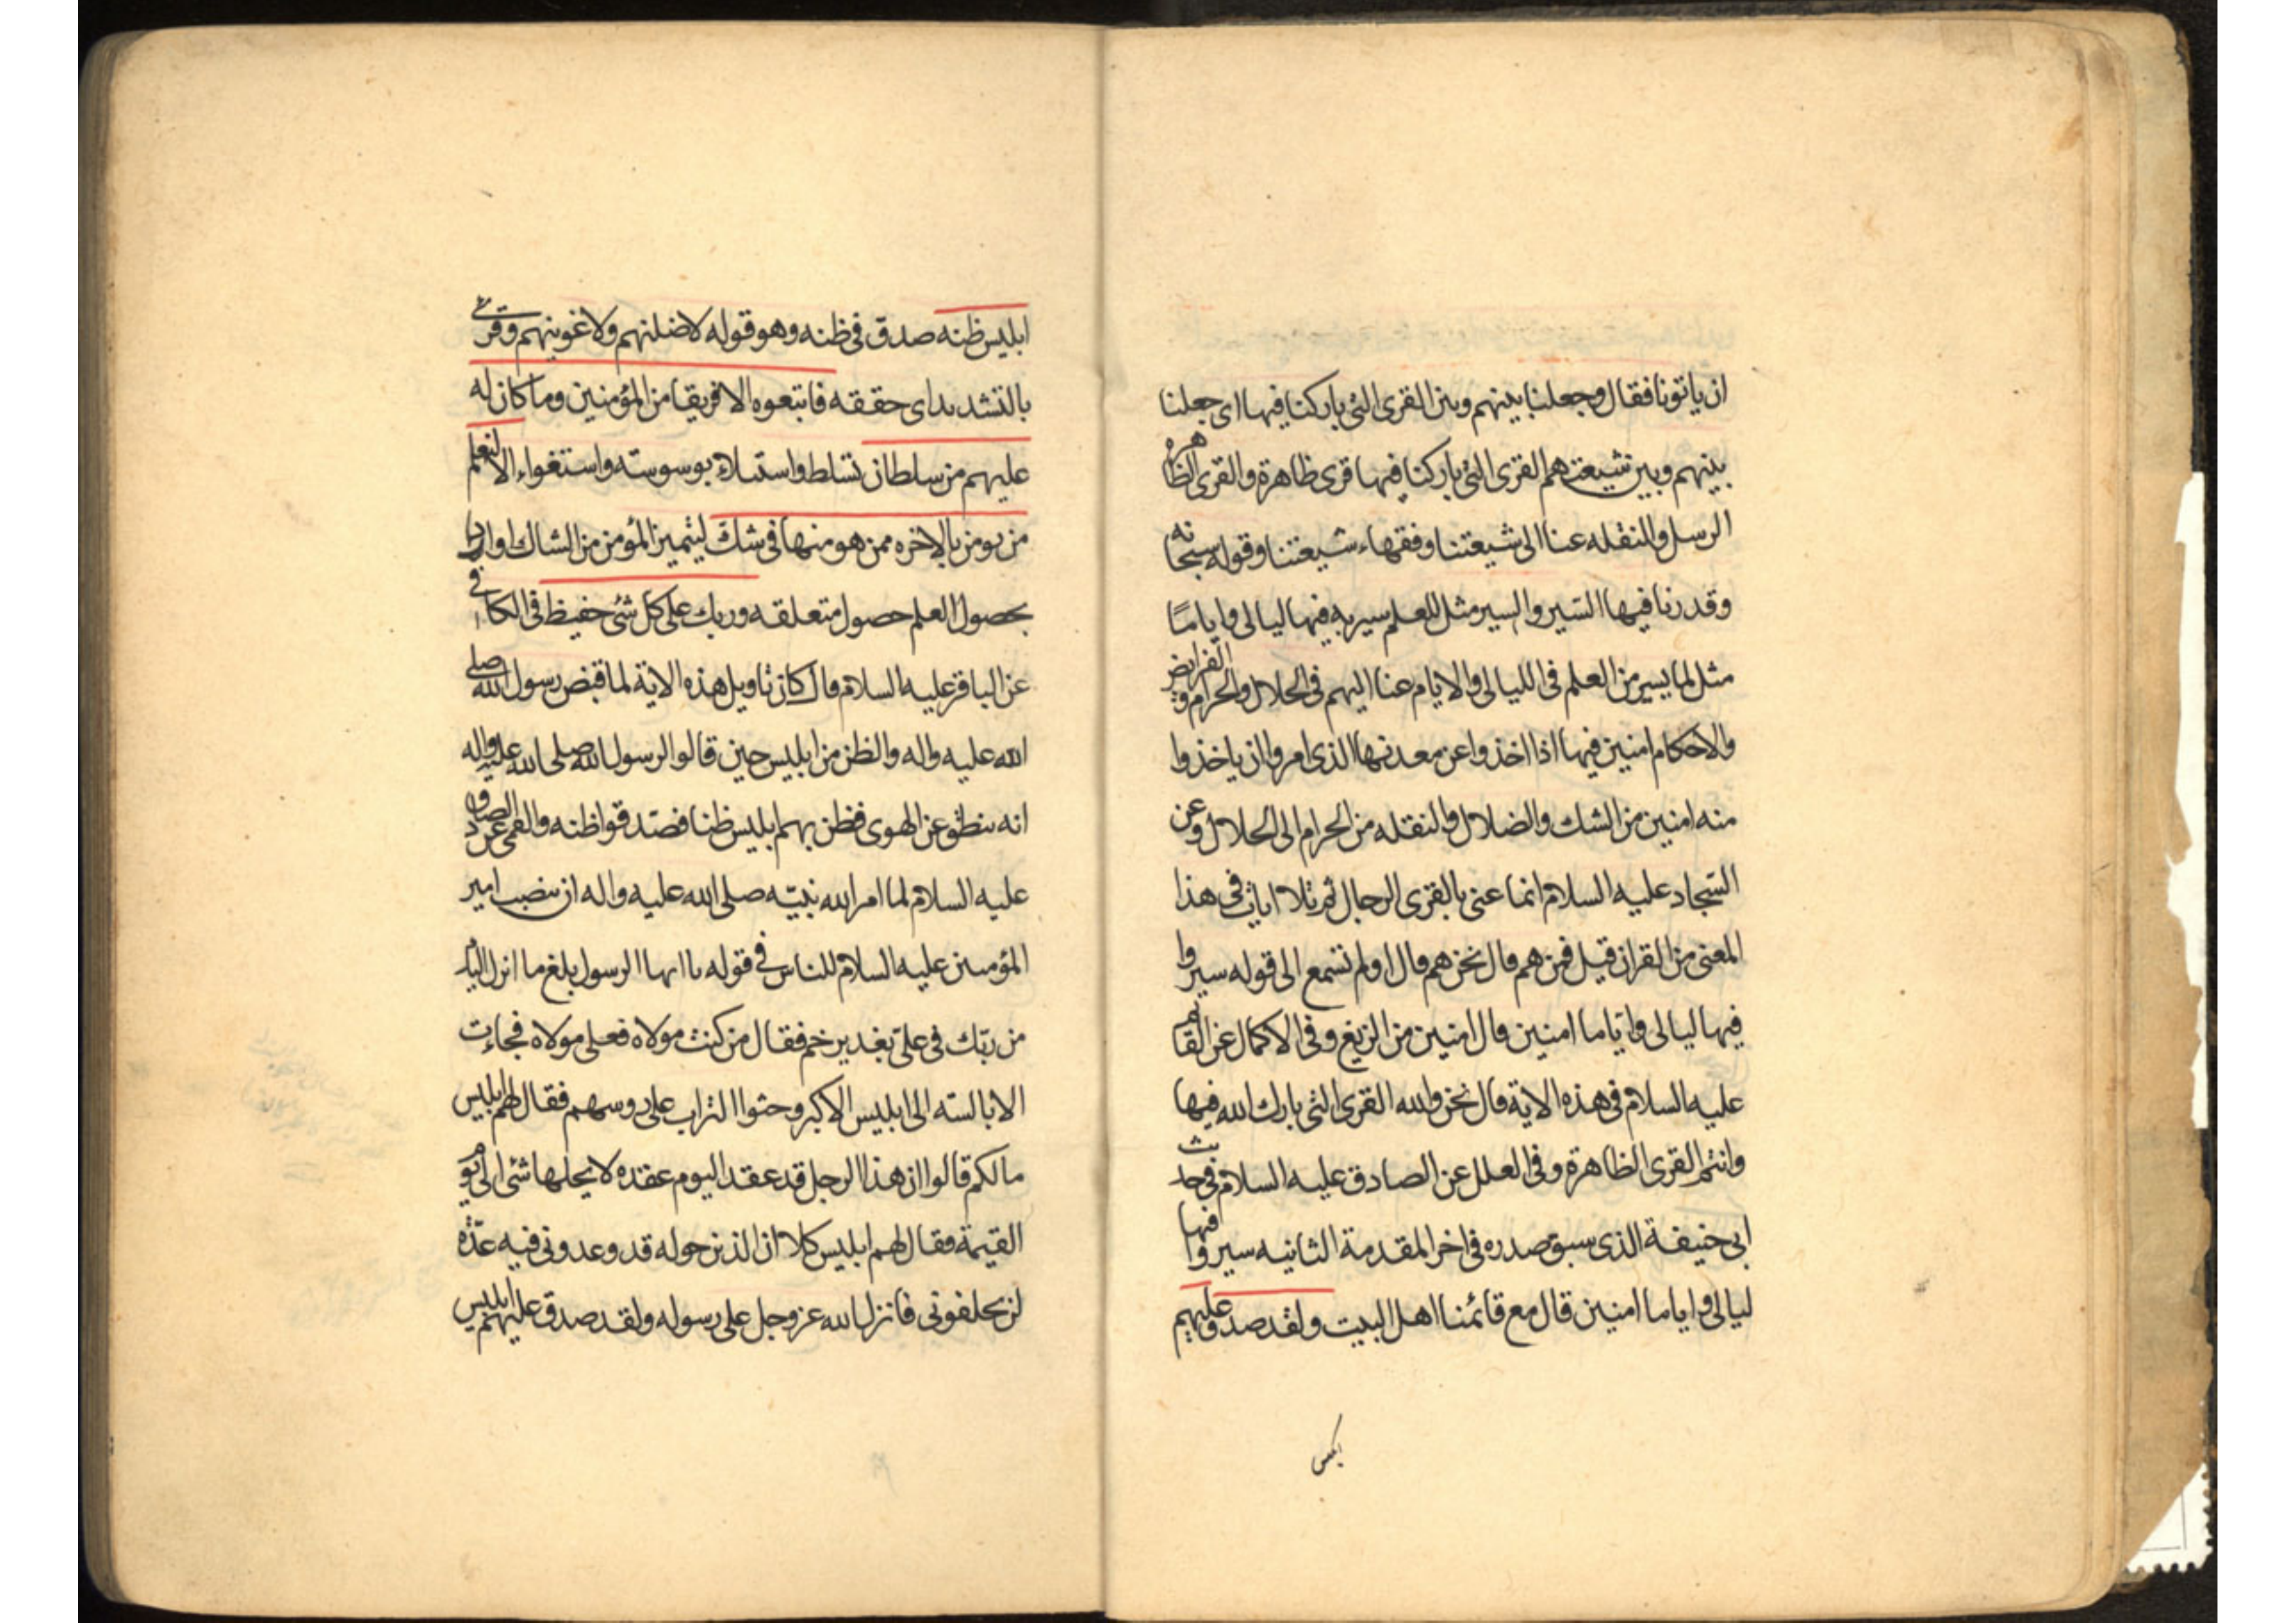 ان ياتونا فقال وجعلنا بينهم وبين القرى التى باركنا فيها اى جعلنا
بينهم وبين شيعتهم القرى التى باركنا فيها قرى ظاهرة والقرى الظاهره
الرسل والنقله عنا الى شيعتنا وفقهاء شيعتنا وقوله سبحانه
وقدرنا فيها السير والسير مثل للعلم سير به فيها ليالى واياما
مثل لما يسير من العلم فى الليالى والايام عنا اليهم فى الحلال والحرام والفرايض
والاحكام امنين فيها اذا اخذوا عن معدنها الذى امروا ان ياخذوا
منه امنين من الشك والضلال والنقله من الحرام الى الحلال وعن
السجاد عليه السلام انما عنى بالقرى الرجال ثم تلا ايات فى هذا
المعنى من القران قيل فمن هم قال نحن هم قال اولم تسمع الى قوله سيروا
فيها ليالى واياما امنين قال امنين من الزيغ وفى الاكمال عن القائم
عليه السلام فى هذه الاية قال نحن والله القرى التى بارك الله فيها
وانتم القرى الظاهرة وفى العلل عن الصادق عليه السلام فى حديث
ابى حنيفة الذى سبق صدره فى اخر المقدمة الثانيه سيروا فيها
ليالى واياما امنين قال مع قائمنا اهل البيت ولقد صدق عليهم
ابليس
ابليس ظنه صدق فى ظنه وهو قوله لاضلنهم ولاغوينهم وقرئ
بالتشديد اى حققه فاتبعوه الا فريقا من المؤمنين وما كان له
عليهم من سلطان تسلط واستيلاء بوسوسته واستغواء الا لنعلم
من يومن بالاخره ممن هو منها فى شك ليتميز المؤمن من الشاك اواريد
بحصول العلم حصول متعلقه وربك على كل شئ حفيظ فى الكافى
عن الباقر عليه السلام قال كان تاويل هذه الاية لما قبض رسول الله صلى
الله عليه واله والظن من ابليس حين قالوا لرسول الله صلى الله عليه واله
انه ينطق عن الهوى فظن بهم ابليس ظنا فصدقوا ظنه والقمى عن الصادق
عليه السلام لما امر الله نبيّه صلى الله عليه واله ان ينصب امير
المؤمنين عليه السلام للناس فى قوله يا ايها الرسول بلغ ما انزل اليك
من ربّك فى على بغدير خم فقال من كنت مولاه فعلى مولاه فجاءت
الابالسته الى ابليس الاكبر وحثوا التراب على روسهم فقال لهم ابليس
مالكم قالوا ان هذا الرجل قد عقد اليوم عقده لا يحلها شئ الى يوم
القيمة فقال لهم ابليس كلا ان الذين حوله قد وعدونى فيه عدّه
لن يخلفونى فانزل الله عز وجل على رسوله ولقد صدق عليهم ابليس